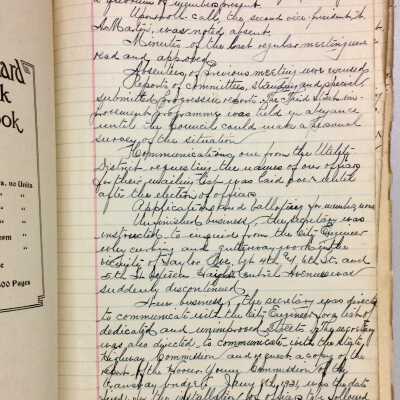 ard
k
ook
a quorum of members present.
Upon roll call, the second vice president
was noted absent.
Minutes of the last regular meeting were
read and approved.
Absentees of previous meeting were excused
Reports of committees, standing and special
submitted progressive reports. The Third Street im-
provement programme was held in abeyance
until the Council could make a personal
survey of the situation
Communications, one from the Utility
District requesting the names of our officers
for their mailing list was laid over until
after the election of officers
Applications and balloting for members none
Unfinished business, the secretary was
instructed to inquire from the City Engineer
why curbing and gutter way work in the
vicinity of Taylor Ave, 4th St, 6th St. and
5th St between Haight Central Avenues was
suddenly discontinued.
New business, the secretary was directed
to communicate with the City Engineer for a list of
dedicated and unimproved streets. The secretary
was also directed to communicate with the State
Highway Commission and request a copy of the
report of the Hoover Young Commission of the
1931, was the date
for the installation of officers to be followed
a. no Units
" "
" "
" "
orm
"
00 Pages